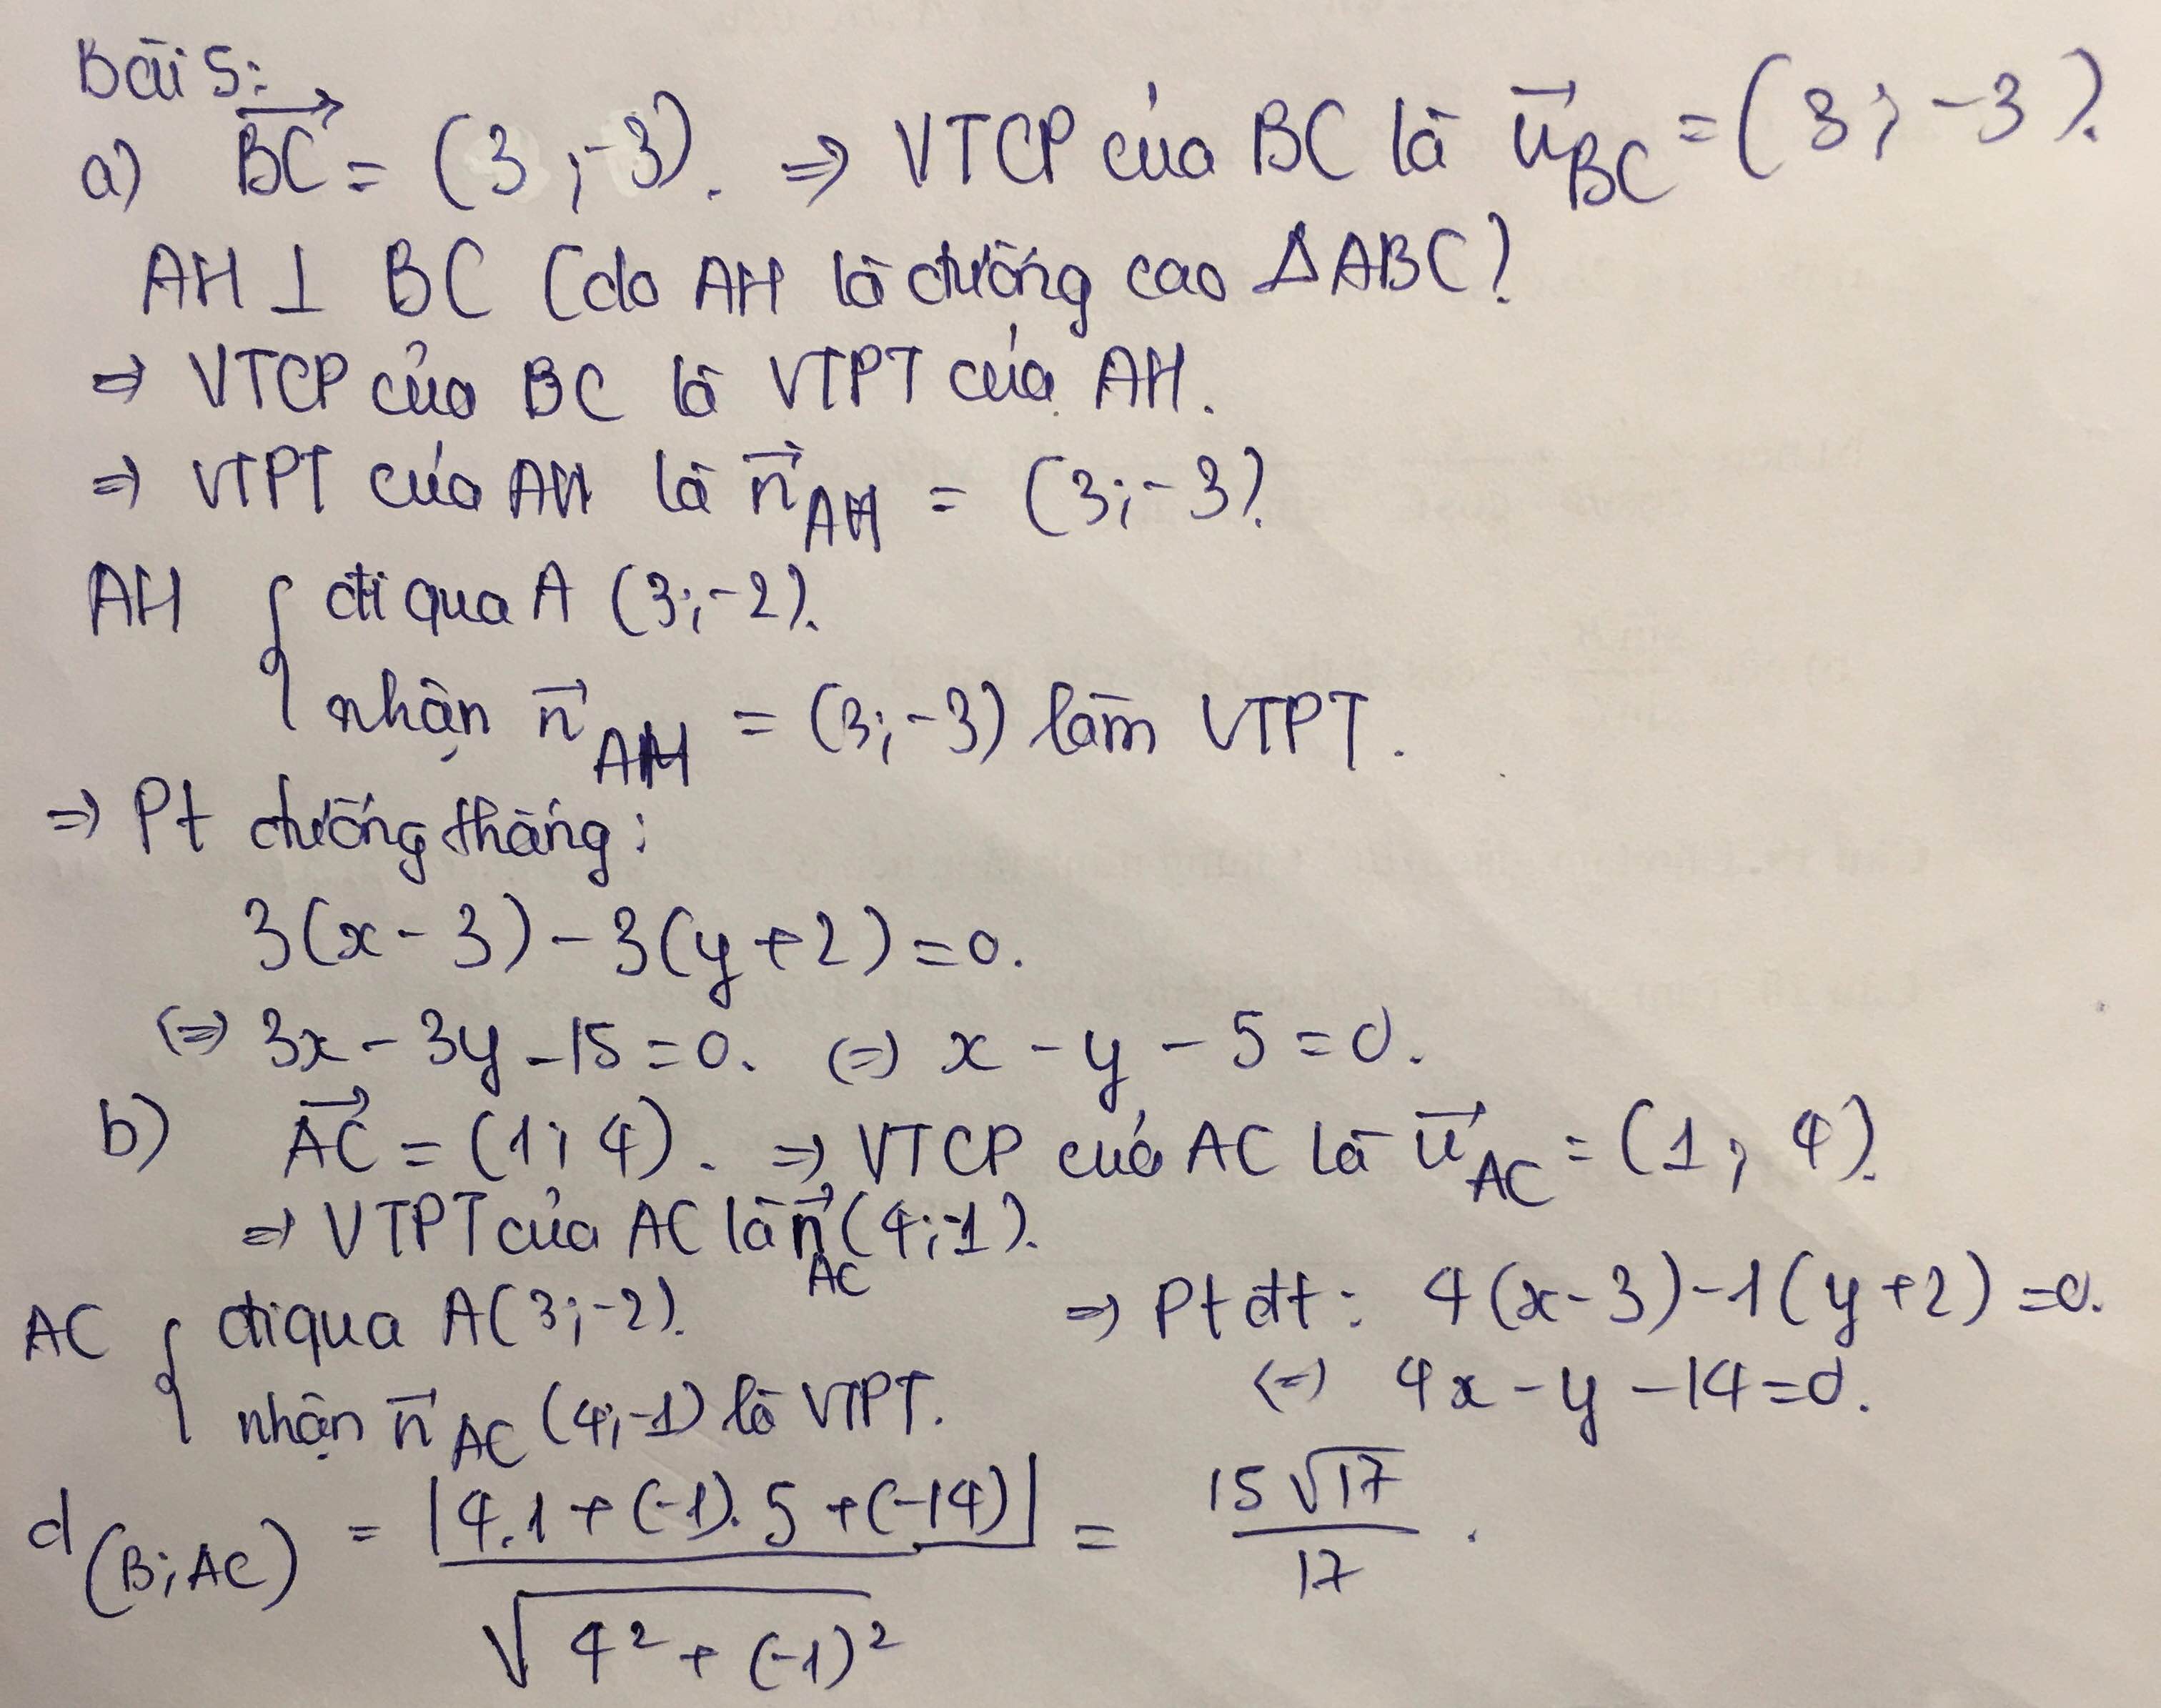 Bài 5:
a) $\overrightarrow{BC}$ = (3 ; -3). ⇒ VTCP của BC là $\vec{u}_{BC}$ = (3 ; -3).
AH ⊥ BC (do AH là đường cao ΔABC).
⇒ VTCP của BC là VTPT của AH.
⇒ VTPT của AH là $\vec{n}_{AH}$ = (3 ; -3).
AH { đi qua A (3 ; -2).
nhận $\vec{n}_{AH}$ = (3 ; -3) làm VTPT.
⇒ Pt đường thẳng :
3(x - 3) - 3(y + 2) = 0.
(⇒) 3x - 3y - 15 = 0. (=) x - y - 5 = 0.
b) $\overrightarrow{AC}$ = (1 ; 4). ⇒ VTCP của AC là $\vec{u}_{AC}$ = (1 ; 4).
⇒ VTPT của AC là $\vec{n}_{AC}$ (4 ; -1).
AC { đi qua A(3 ; -2). ⇒ Pt đt : 4(x - 3) - 1(y + 2) = 0.
nhận $\vec{n}_{AC}$ (4 ; -1) là VTPT. (=) 4x - y - 14 = 0.
$d_{(B;AC)} = \frac{|4.1 + (-1).5 + (-14)|}{\sqrt{4^2 + (-1)^2}} = \frac{15\sqrt{17}}{17}$.